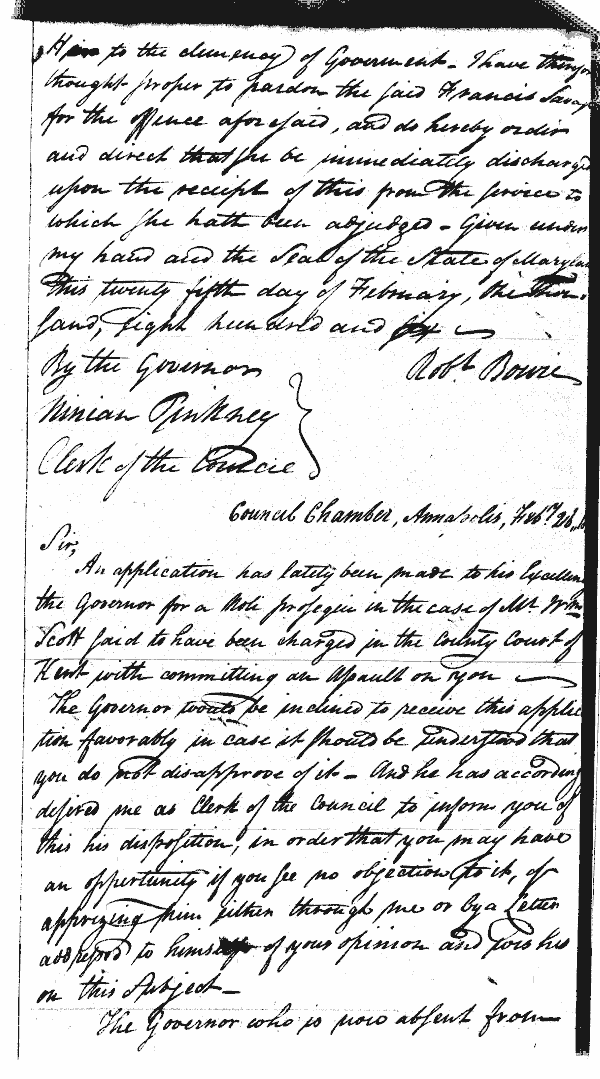 Him to the clemency of Goverment - I have therefor
thought proper to pardon the said Francis Savag
for the offence aforesaid, and do hereby order
and direct that she be immediately discharged
upon the receipt of this from the service to
which she hath been adjudged - Given under
my hand and the Seal of the State of Marylan
this twenty fifth day of February, the thou-
sand, Eight hundred and six
By the Governor Robt. Bowie
Ninian Pinkney
Clerk of the Council
Council Chamber, Annapolis, Feby 28
Sir,
An application has lately been made to his Excellen
the Governor for a Noli prosequi in the case of Mr. Wm
Scott said to have been charged in the County Court of
Kent with committing an assault on you
The Governor would be inclined to receive this applica
tion favorably in case it should be understood that
you do not disapprove of it - And he has according
desired me as Clerk of the Council to inform you of
this his disposition, in order that you may have
an oppertunity if you see no objection to it, of
apprizing him either through me or by a Letter
addressed to himself of your opinion and wishes
on this Subject -
The Governor who is now absent from